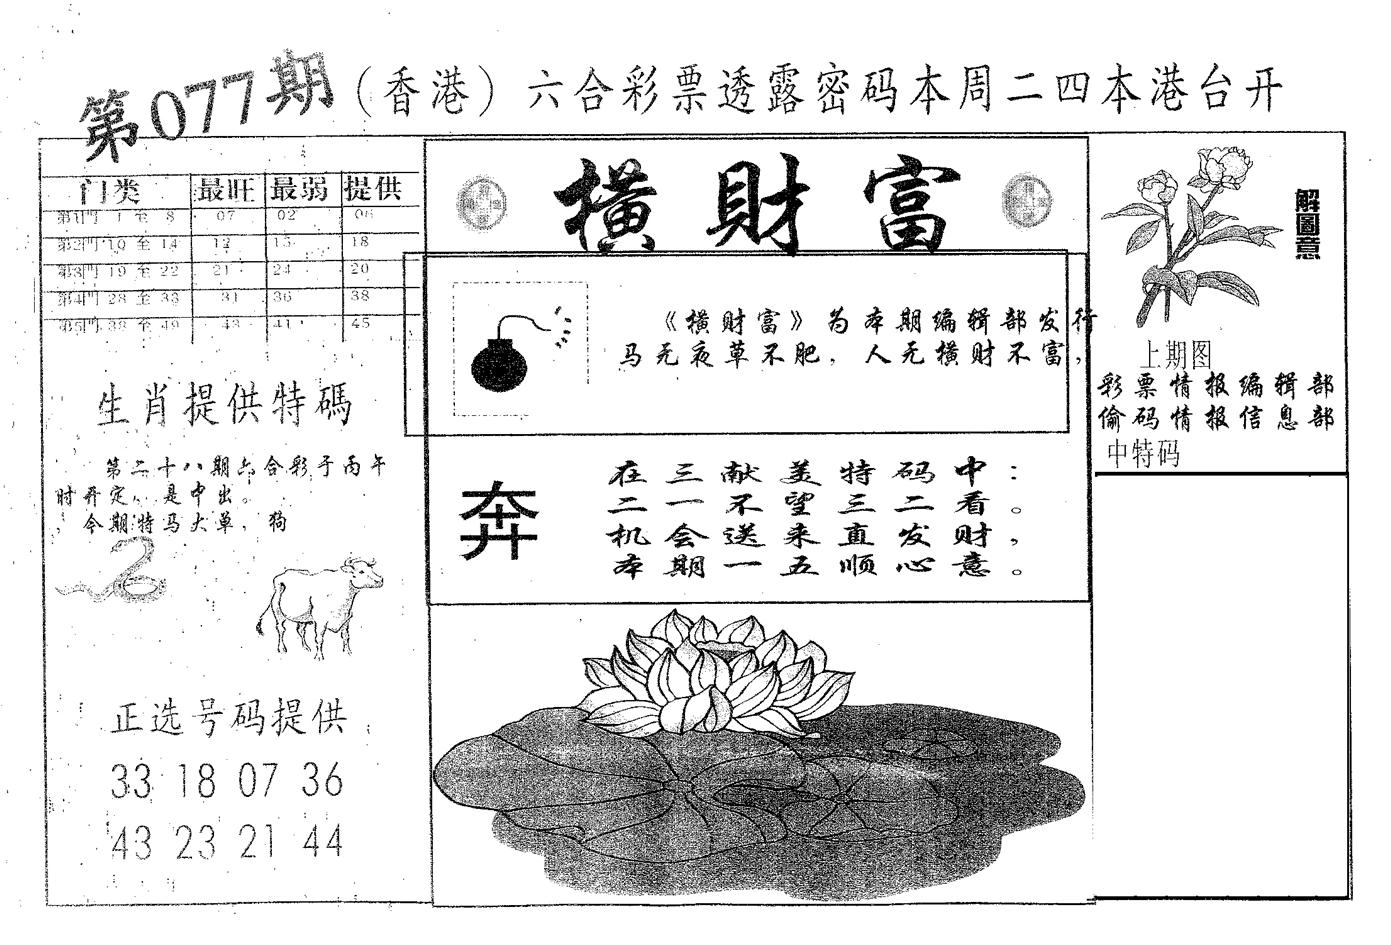 第077期（香港）六合彩票透露密码本周二四本港台开
门类 最旺 最弱 提供
第1门 1 至 8 07 02 06
第2门 10 至 14 12 15 18
第3门 19 至 22 21 24 20
第4门 28 至 33 31 36 38
第5门 38 至 49 43 41 45
生肖提供特碼
第二十八期六合彩于丙午
时开定，是中出。
今期特马大单，狗
正选号码提供
33 18 07 36
43 23 21 44
横財富
《横财富》为本期编辑部发行
马无夜草不肥，人无横财不富，
奔
在三献美特码中：
二一不望三二看。
机会送来直发财，
本期一五顺心意。
解圖意
上期图
彩票情报编辑部
偷码情报信息部
中特码